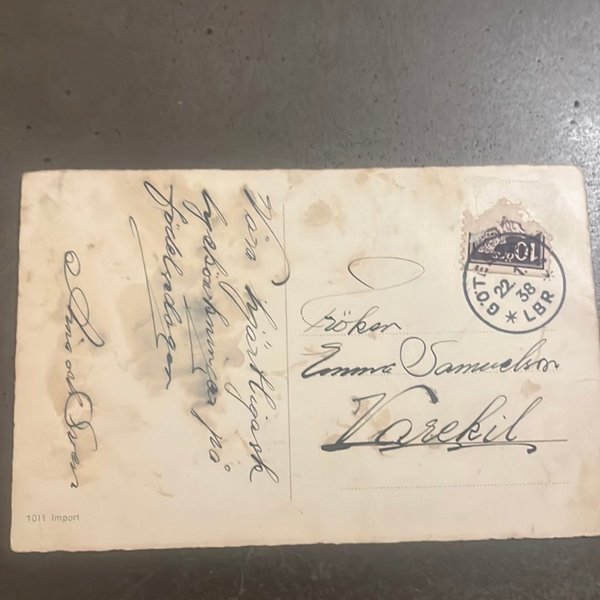 Våra hjärtligaste
lyckönskningar på
födelsedagen
Anna och Sven
1011 Import
10
GÖTEBORG LBR
22
38
Fröken
Emma Samuelson
Varekil